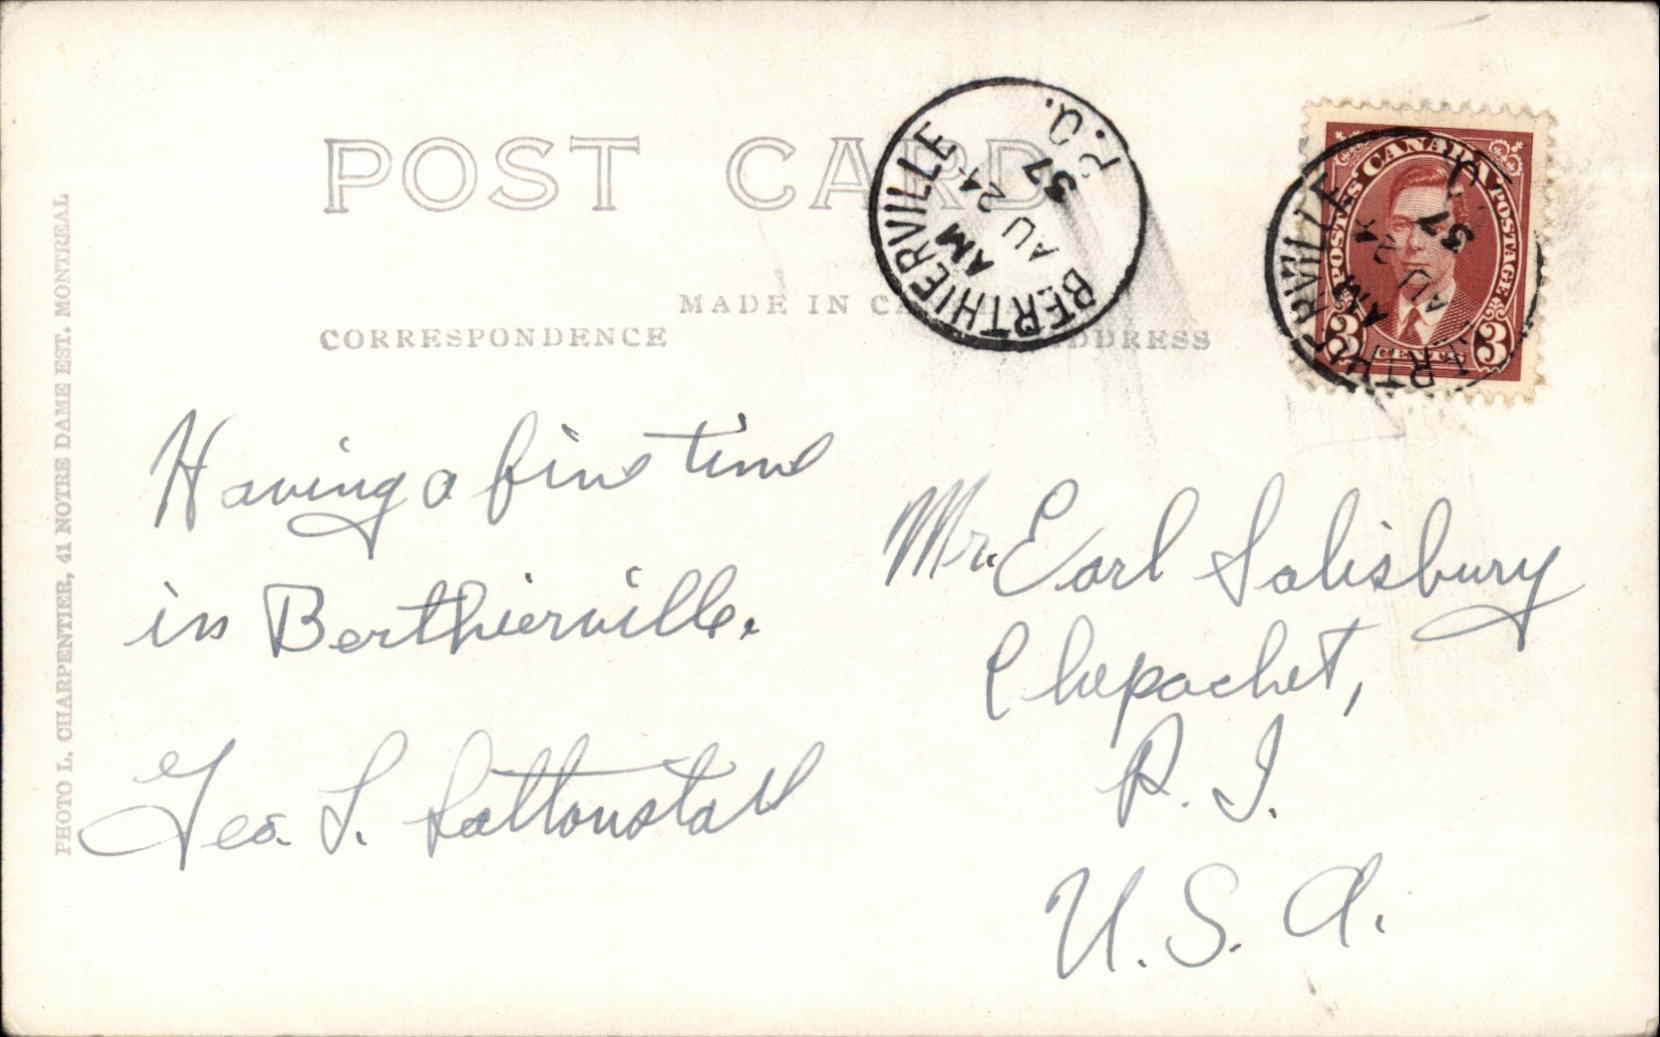 POST CARD
MADE IN CA
CORRESPONDENCE
ADDRESS
BERTHIERVILLE
AM
AU 24
37
P.Q.
POSTES CANADA POSTAGE
3 CENTS 3
RVILLE
AM
AU 24
37
PHOTO L. CHARPENTIER, 41 NOTRE DAME EST. MONTREAL
Having a fine time
in Berthierville.
Geo. S. Saltonstall
Mr. Earl Salisbury
Chepachet,
R. I.
U. S. A.